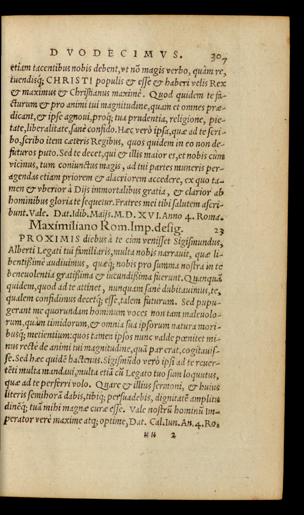 DVODECIMVS. 307
etiam tacentibus nobis debent, vt nõ magis verbo, quàm re,
tuendisq́; CHRISTI populis & esse & haberi velis Rex
& maximus & Christianus maximè. Quod quidem te fa-
cturum & pro animi tui magnitudine, quam et omnes præ-
dicant, & ipse agnoui, proq́; tua prudentia, religione, pie-
tate, liberalitate, sanè confido. Hæc verò ipsa, quæ ad te scri-
bo, scribo item cæteris Regibus, quos quidem in eo non de-
futuros puto. Sed te decet, qui & illis maior es, et nobis cùm
vicinus, tum coniunctus magis, ad tui partes muneris per-
agendas etiam priorem & alacriorem accedere, ex quo ta-
men & vberior à Dijs immortalibus gratia, & clarior ab
hominibus gloria te sequetur. Fratres mei tibi salutem ascri-
bunt. Vale. Dat. Idib. Maijs. M. D. XVI. Anno 4. Roma.
Maximiliano Rom. Imp. desig. 23
PROXIMIS diebus à te cùm venisset Sigismundus,
Alberti Legati tui familiaris, multa nobis narrauit, quæ li-
bentißimè audiuimus, quæq́; nobis pro summa nostra in te
beneuolentia gratißima & iucundißima fuerunt. Quanquã
quidem, quod ad te attinet, nunquam sanè dubitauimus, te,
qualem confidimus decetq́; esse, talem futurum. Sed pupu-
gerant me quorundam hominum voces non tam maleuolo-
rum, quàm timidorum, & omnia sua ipsorum natura mori-
busq́; metientium: quos tamen ipsos nunc valde pœnitet mi-
nus rectè de animi tui magnitudine, quã par erat, cogitauis-
se. Sed hæc quidẽ hactenus. Sigismũdo verò ipsi ad te reuer-
tẽti multa mandaui, multa etiã cũ Legato tuo sum loquutus,
quæ ad te perferri volo. Quare & illius sermoni, & huius
literis semihorã dabis, tibiq́; persuadebis, dignitatẽ amplitu
dinẽq́; tuã mihi magnæ curæ esse. Vale nostrũ hominũ Im-
perator verè maxime atq; optime, Dat. Cal. Iun. An. 4. Ro.
HH 2